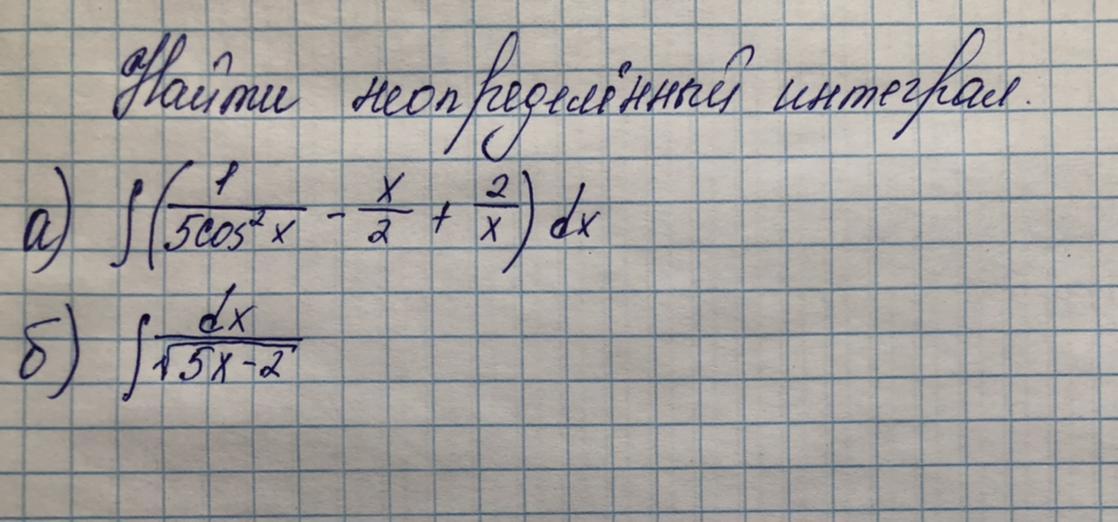 Найти неопределённый интеграл.
а) ∫(1/(5cos²x) - x/2 + 2/x) dx
б) ∫ dx/√(5x-2)